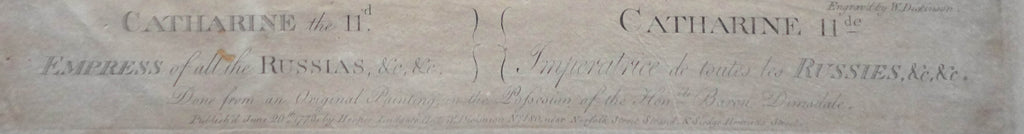 Engrav'd by W. Dickinson
CATHARINE the 11.d } { CATHARINE 11de
EMPRESS of all the RUSSIAS, &c, &c. } { Imperatrice de toutes les RUSSIES, &c, &c.
Done from an Original Painting, in the Possession of the Honble Baron Dimsdale.
Publish'd June 20th 1773 by W. Dickinson No. 180, near Norfolk Street Strand